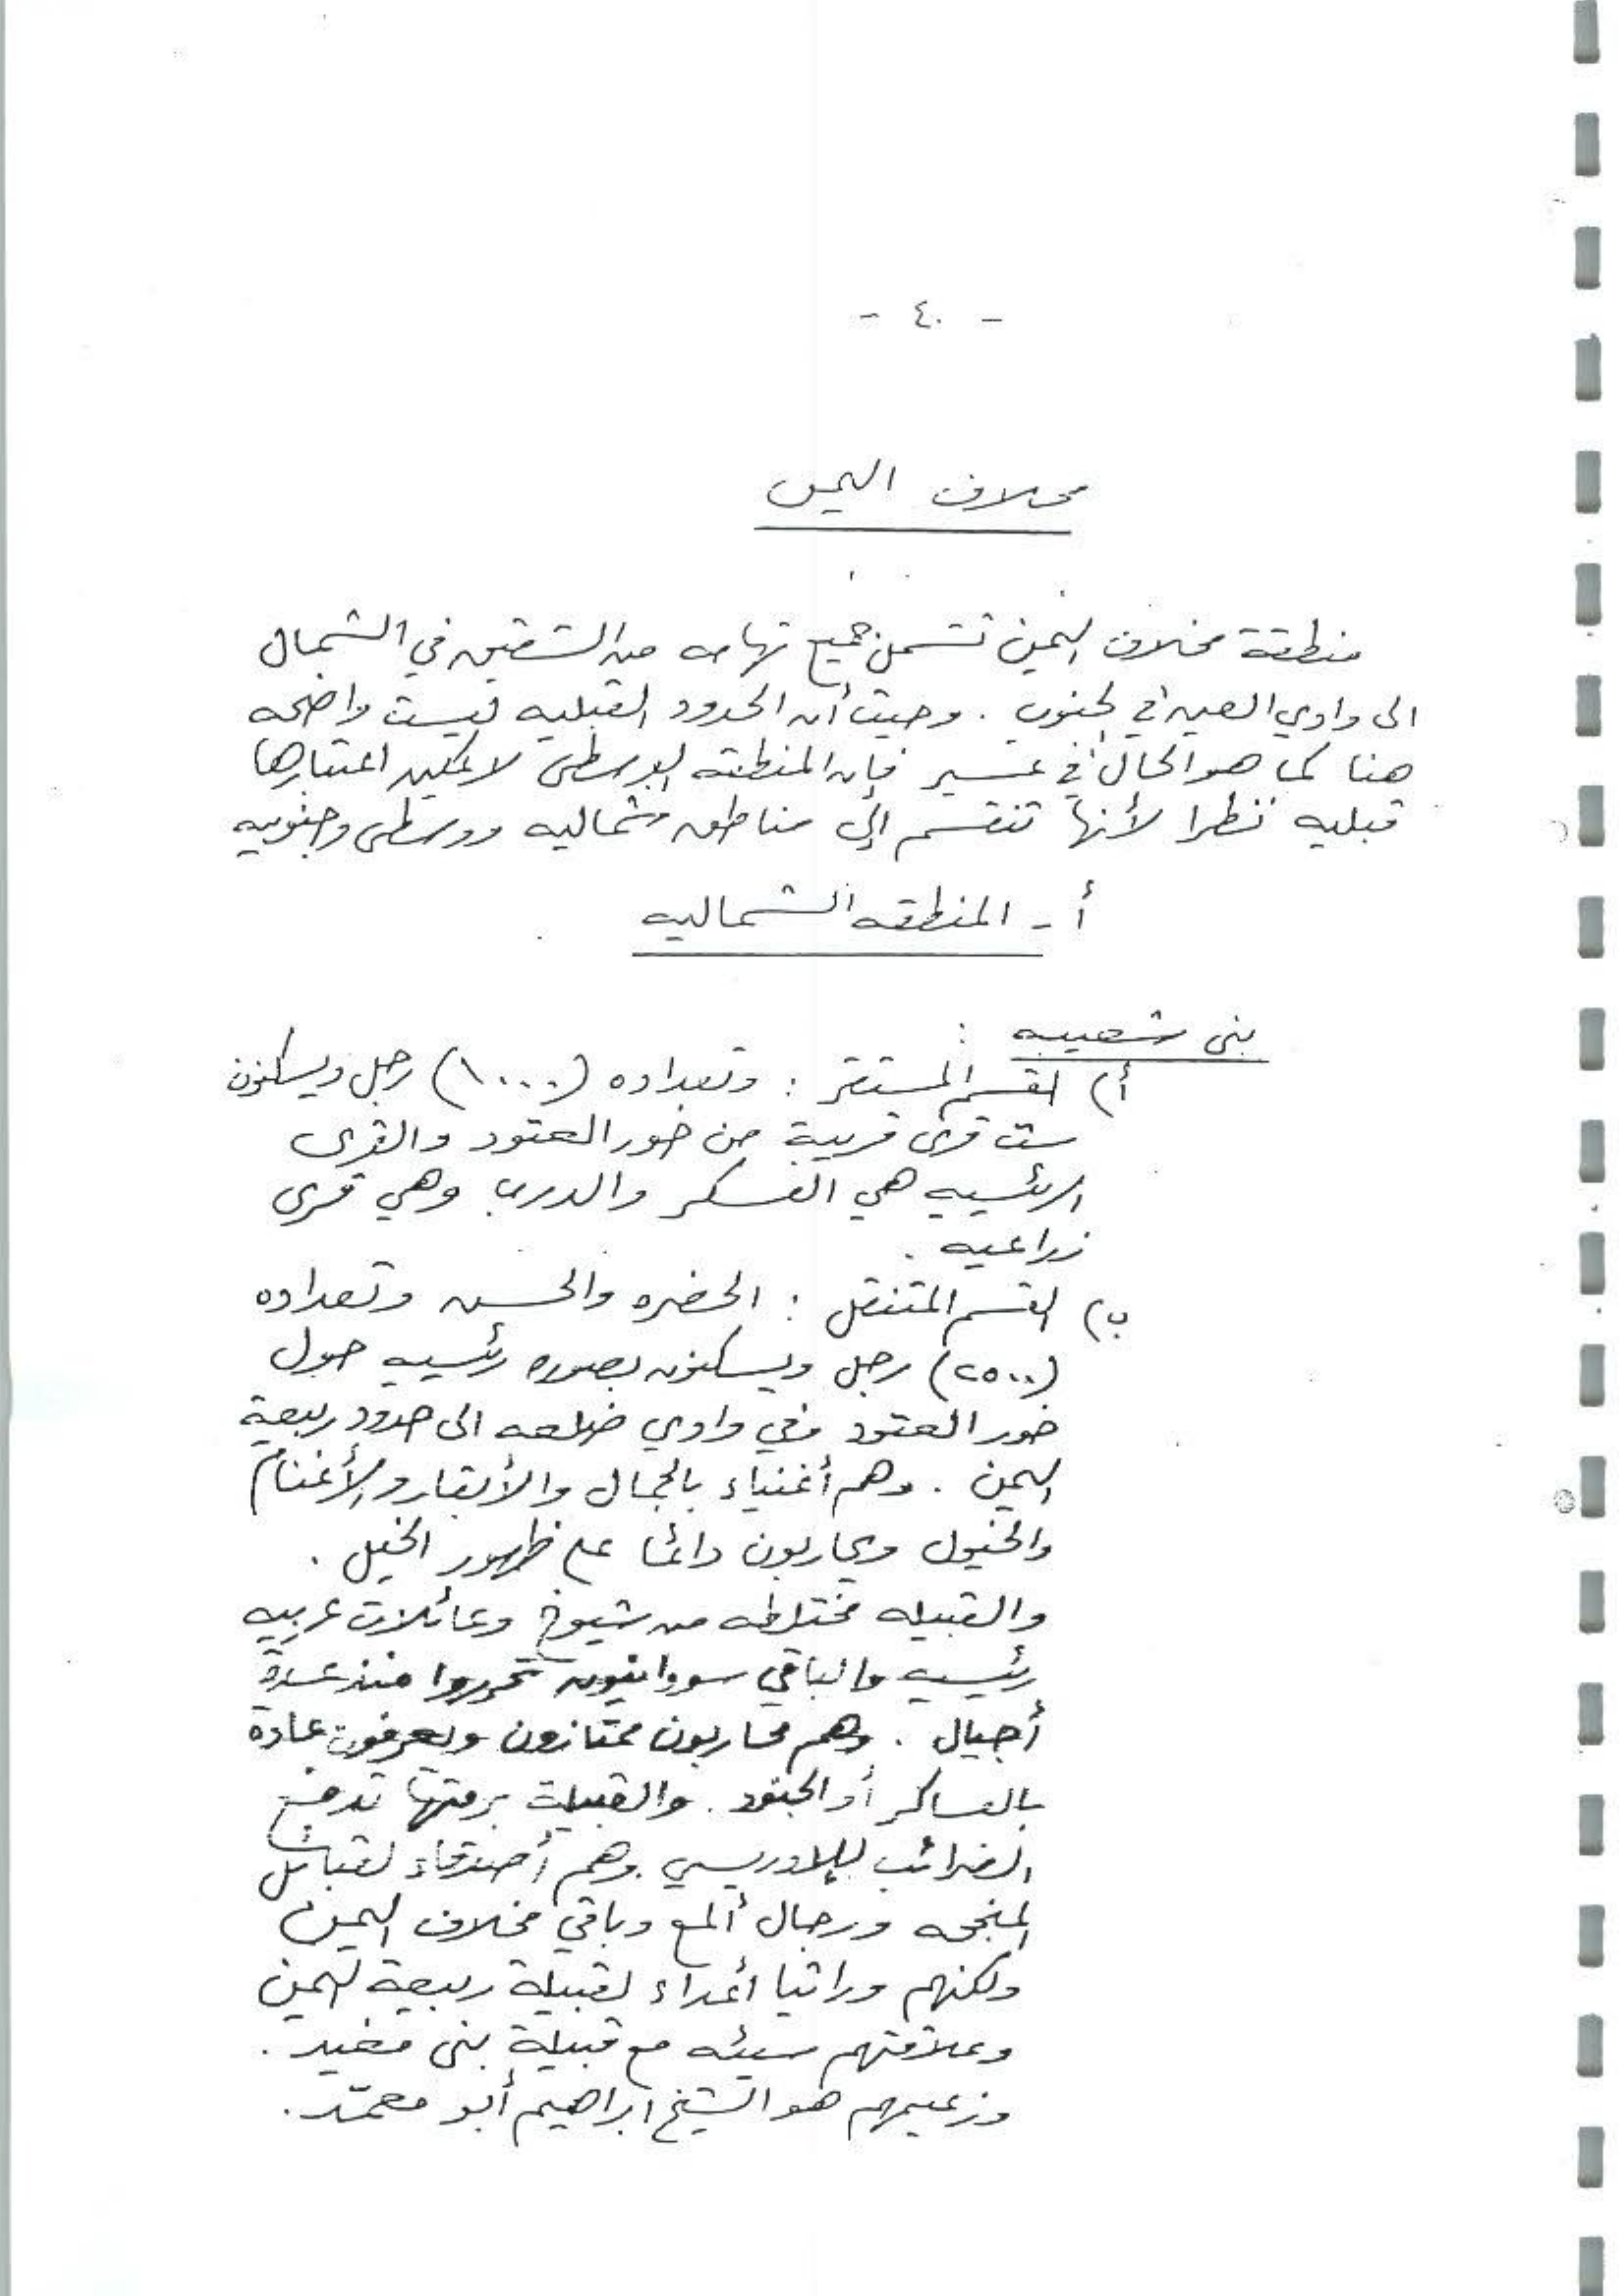 - ٤٠ -
مخلاف اليمن
منطقة مخلاف اليمن تشمل جميع تهامه من الشقيق في الشمال
الى وادي العين في الجنوب . وحيث أن الحدود القبليه ليست واضحه
هنا كما هو الحال في عسير فإن المنطقه الوسطى لا يمكن اعتبارها
قبليه نظرا لأنها تنقسم إلى مناطق شماليه ووسطى وجنوبيه
أ - المنطقه الشماليه
بنى شعيبه :
أ) القسم المستقر : وتعداده (١٠٠٠) رجل ويسكنون
ست قرى قريبة من خور العتود والقرى
الرئسيه هي العسكر والدرب وهي قرى
زراعيه .
ب) القسم المتنقل : الحضره والحسن وتعداده
(٢٥٠٠) رجل ويسكنون بصوره رئسيه حول
خور العتود وفي وادي ضلعه الى حدود ربيعة
اليمن . وهم أغنياء بالجمال والأبقار والأغنام
والخيول ويحاربون دائما على ظهور الخيل .
والقبيله مختلطه من شيوخ وعائلات عربيه
رئيسيه والباقي سودانيون تحرروا منذ عدة
أجيال . وهم محاربون ممتازون ويعرفون عادة
بالعساكر أو الجنود . والقبيلة برمتها تدفع
الضرائب للادريسي . وهم أصدقاء لقبائل
المنجحه ورجال ألمع وباقي مخلاف اليمن
ولكنهم وراثيا أعداء لقبيلة ربيعة اليمن
وعلاقتهم سيئه مع قبيلة بنى مغيد .
وزعيمهم هو الشيخ ابراهيم أبو معمّد .